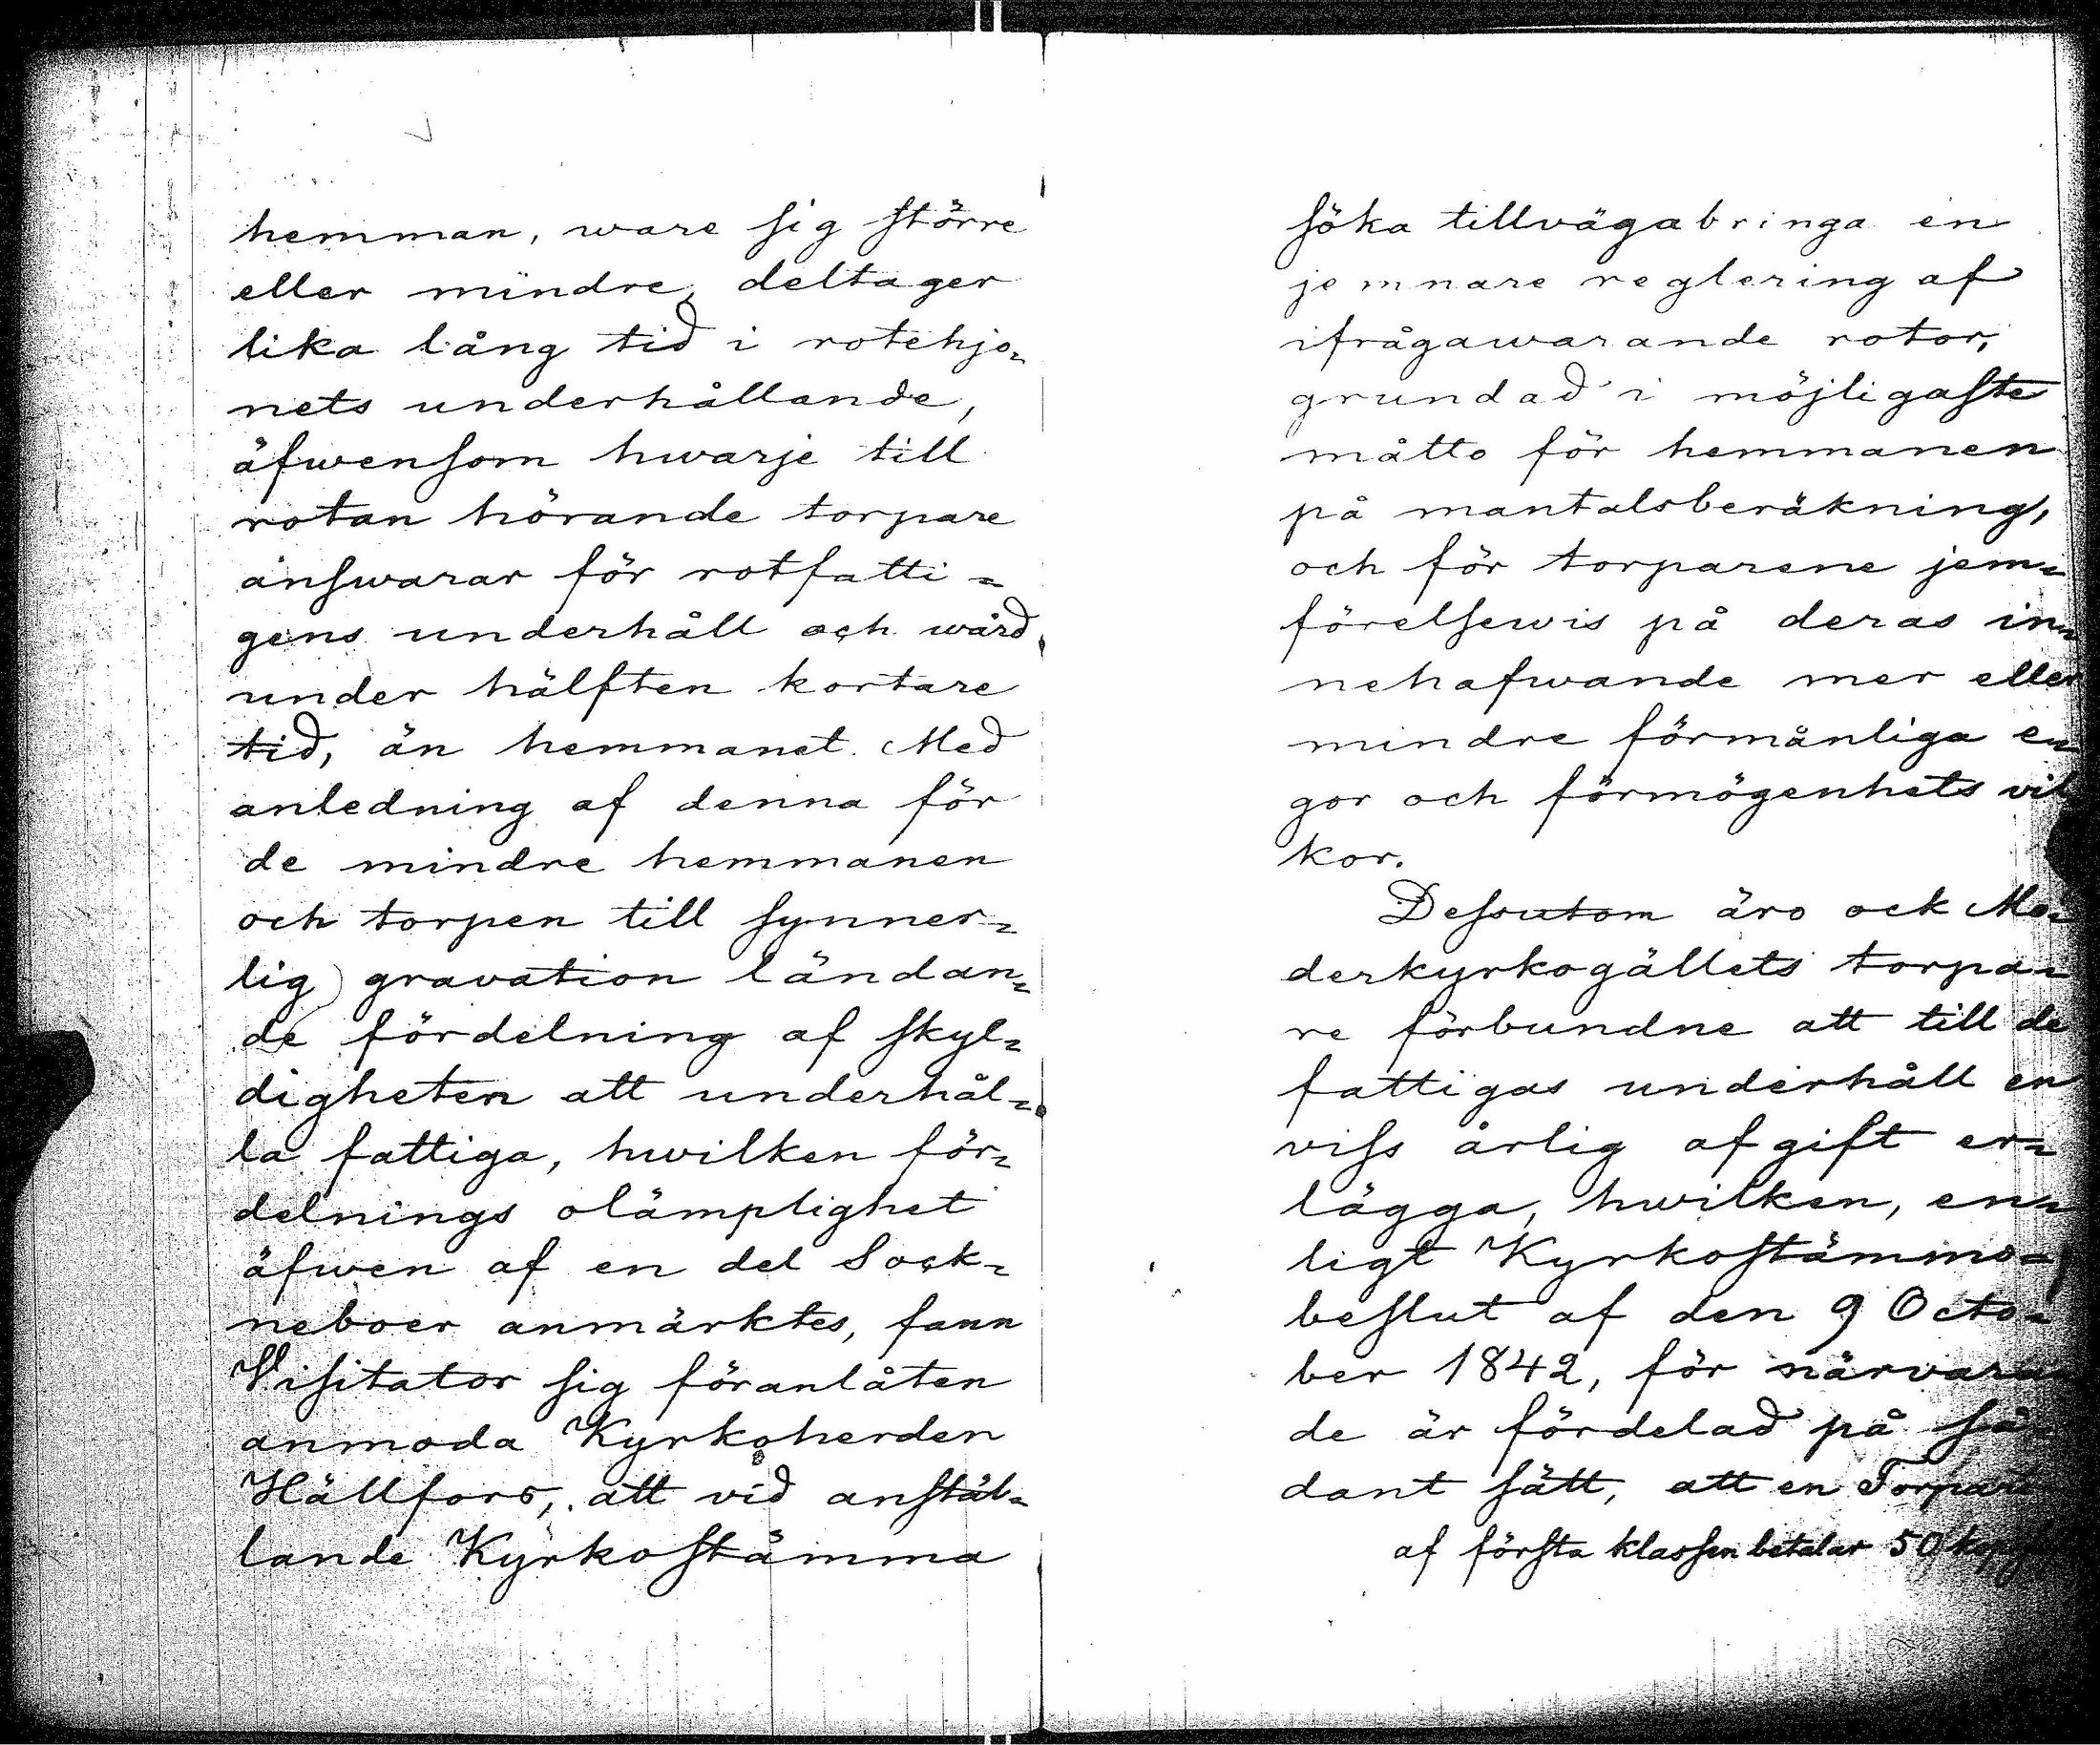 hemman, ware sig större
eller mindre, deltager
lika lång tid i rotehjo-
nets underhållande,
äfwensom hwarje till
rotan hörande torpare
answarar för rotfatti-
gens underhåll och wård
under hälften kortare
tid, än hemmanet. Med
anledning af denna för
de mindre hemmanen
och torpen till synner-
lig gravation ländan-
de fördelning af skyl-
digheten att underhål-
la fattiga, hwilken för-
delnings olämplighet
äfwen af en del Sock-
neboer anmärktes, fann
Visitator sig föranlåten
anmoda Kyrkoherden
Hällfors, att vid anstäl-
lande Kyrkostämma
söka tillvägabringa en
jemnare reglering af
ifrågawarande rotor,
grundad i möjligaste
måtto för hemmanen
på mantalsberäkning,
och för torparene jem-
förelsewis på deras in-
nehafwande mer eller
mindre förmånliga en-
gor och förmögenhets vil
kor.
Dessutom äro ock Mo-
derkyrkogällets torpa-
re förbundne att till de
fattigas underhåll en
viss årlig afgift er-
lägga, hwilken, en-
ligt Kyrkostämmo-
beslut af den 9 Octo-
ber 1842, för närvaran
de är fördelad på så-
dant sätt, att en Torpare
af första klassen betalar 50